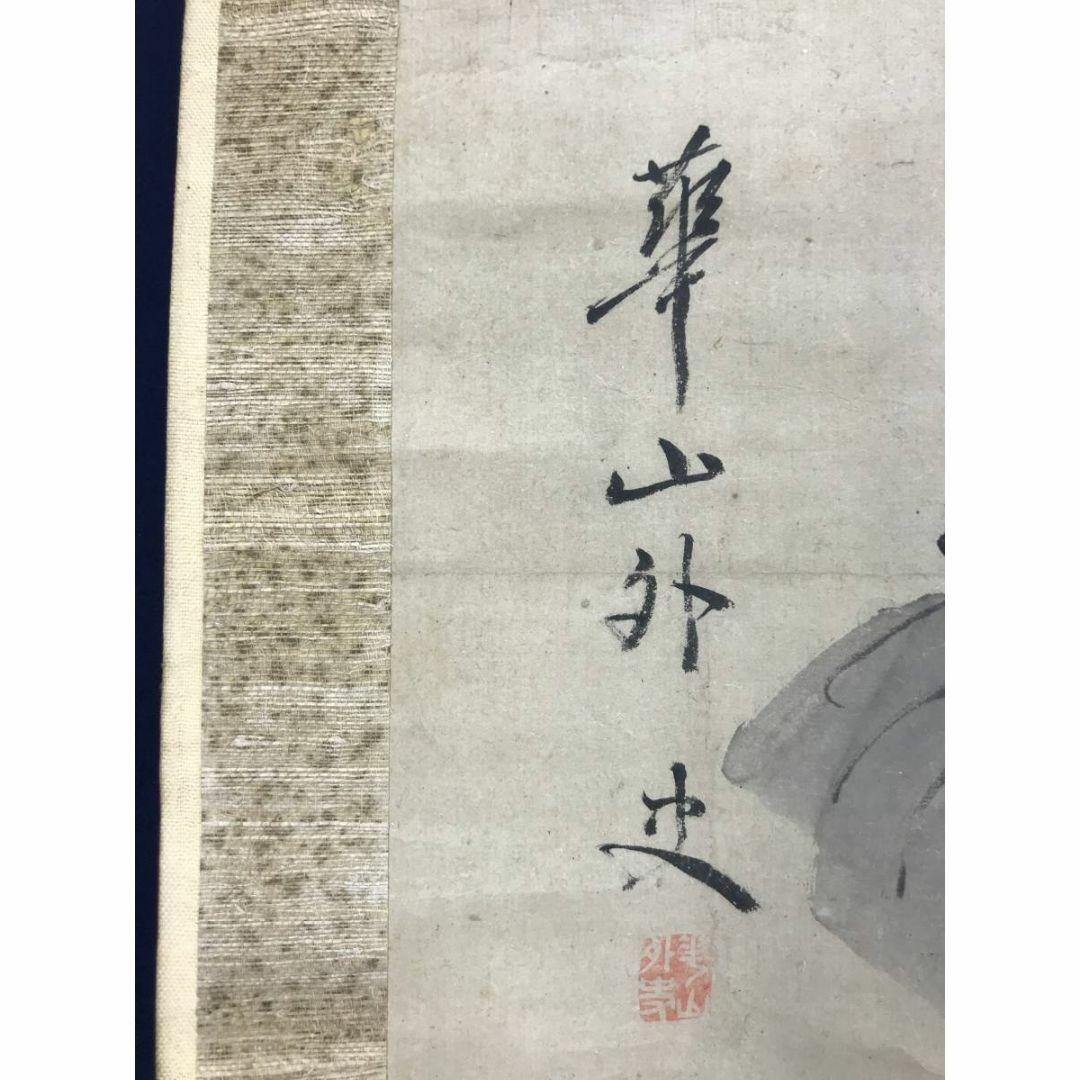 華山外史
華山外史